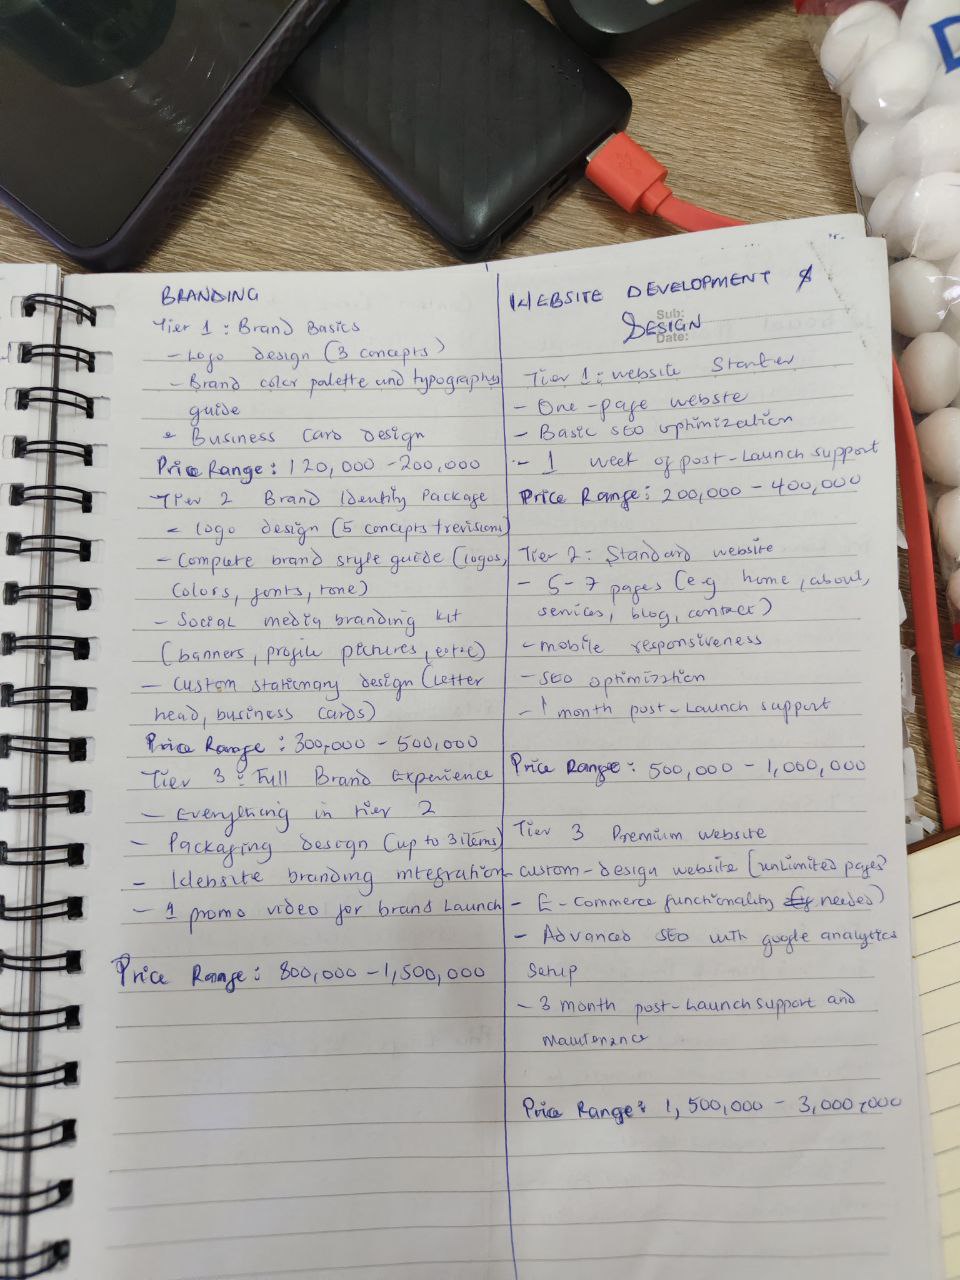 BRANDING
Tier 1 : Brand Basics
- Logo design (3 concepts)
- Brand color palette and typography
guide
- Business Card Design
Price Range : 120,000 - 200,000
Tier 2 Brand Identity Package
- Logo design (5 concepts + revisions)
- Complete brand style guide (logos,
colors, fonts, tone)
- Social media branding kit
(banners, profile pictures, etc)
- Custom stationary design (Letter
head, business cards)
Price Range : 300,000 - 500,000
Tier 3 : Full Brand Experience
- Everything in tier 2
- Packaging design (up to 3 items)
- Website branding integration
- 1 promo video for brand Launch
Price Range : 800,000 - 1,500,000
WEBSITE DEVELOPMENT &
Sub:
DESIGN
Date:
Tier 1 : website Starter
- One-page webste
- Basic SEO optimization
- 1 week of post-Launch support
Price Range : 200,000 - 400,000
Tier 2 : Standard website
- 5-7 pages (e.g home, about,
services, blog, contact)
- mobile responsiveness
- SEO optimization
- 1 month post-Launch support
Price Range : 500,000 - 1,000,000
Tier 3 Premium website
- custom-design website (unlimited pages)
- E-Commerce functionality needed)
- Advanced SEO with google analytics
Setup
- 3 month post-Launch support and
Price Range : 1,500,000 - 3,000,000